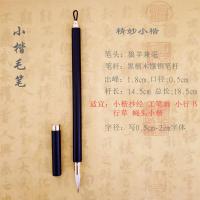 小楷毛笔
精妙小楷
笔头：狼羊兼毫
笔杆：黑檀木镶铜笔杆
出峰：1.8cm 口径：0.5cm
杆长：14.5cm 总长：18.5cm
适宜：小楷抄经 工笔画 小行书
行草 蝇头小楷
字径：写0.5cm-2cm字体